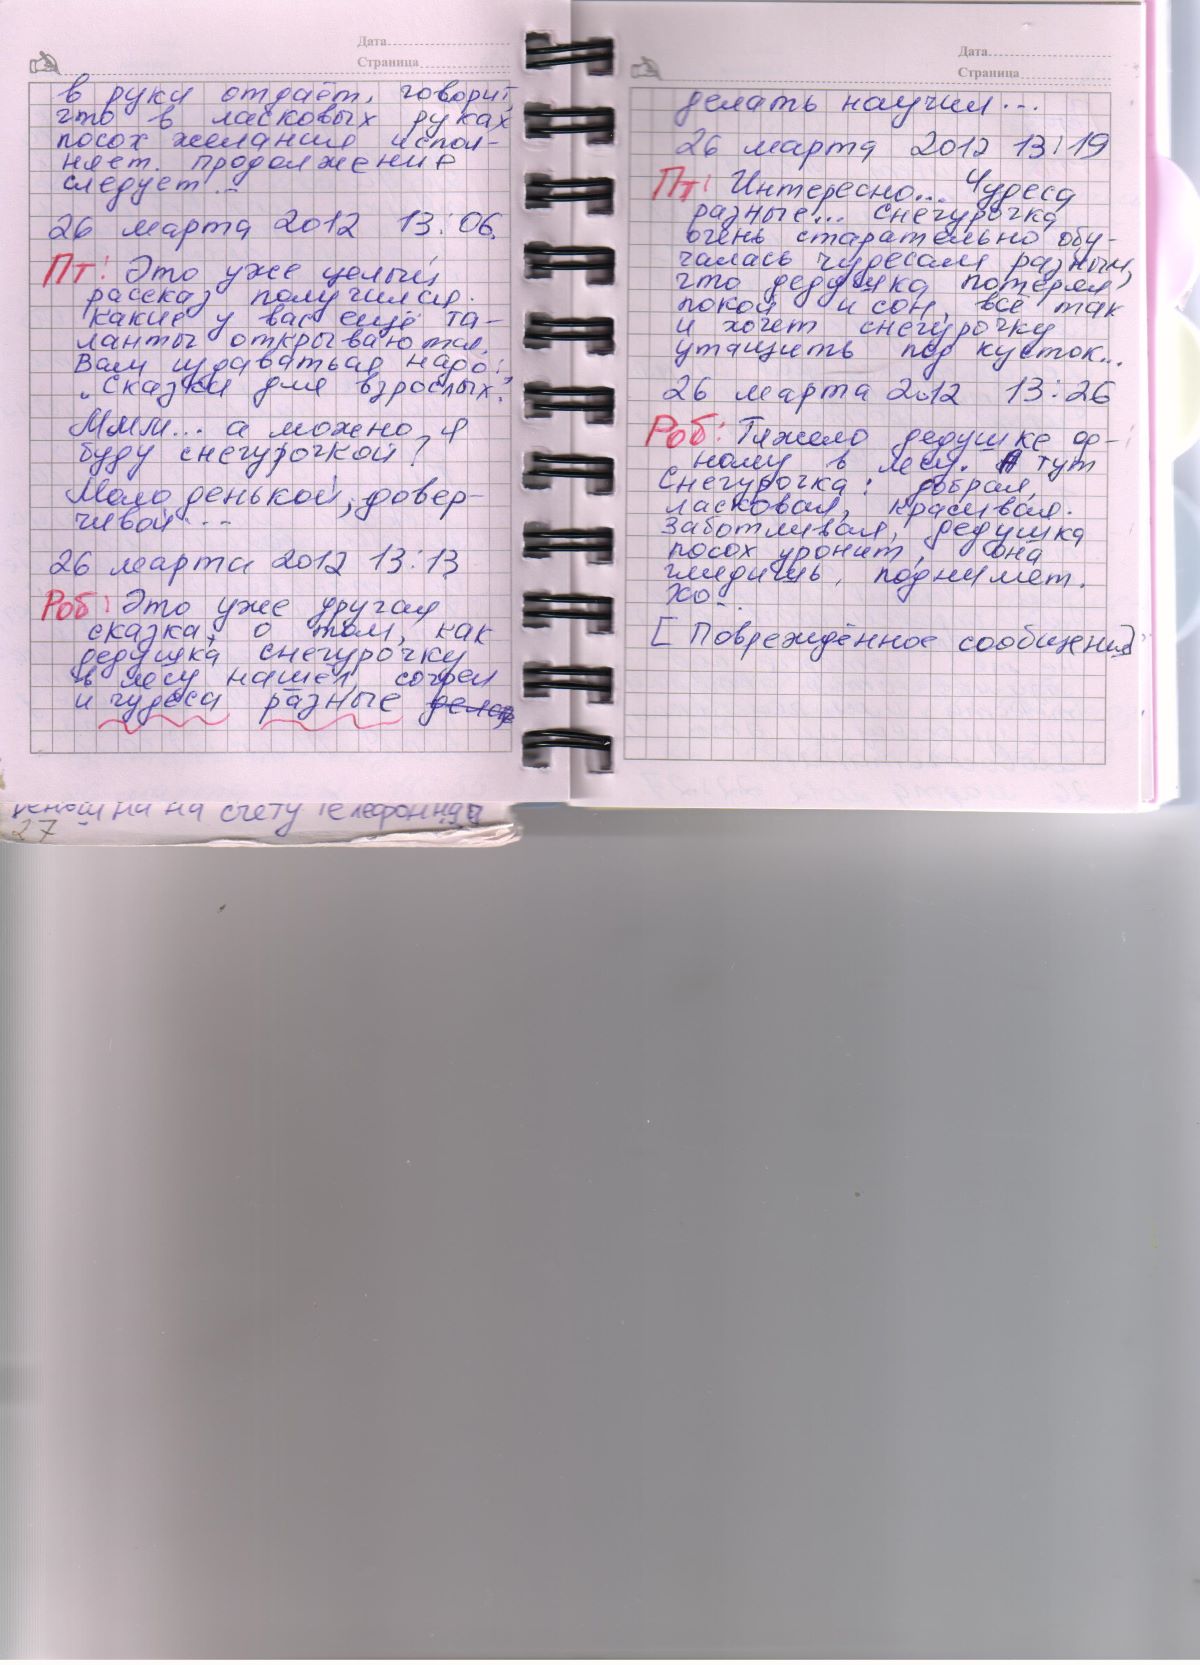 Дата
Страница
в руки отдаёт, говорит,
что в ласковых руках
посох желания испол-
няет. Продолжение
следует...
26 марта 2012 13:06
Пт: Это уже целый
рассказ получился.
Какие у вас ещё та-
ланты открываются.
Вам издаваться надо:
„Сказки для взрослых".
Ммм... а можно я
буду снегурочкой?
Молоденькой, довер-
чивой...
26 марта 2012 13:13
Роб: Это уже другая
сказка, о том, как
дедушка снегурочку
в лесу нашёл согрел
и чудеса разные
на счету телефонида
27
Дата
Страница
делать научил...
26 марта 2012 13:19
Пт: Интересно... Чудеса
разные... снегурочка
очень старательно обу-
чалась чудесам разным,
что дедушка потерял
покой и сон, всё так
и хочет снегурочку
утащить под кусток...
26 марта 2012 13:26
Роб: Тяжело дедушке од-
ному в лесу. А тут
Снегурочка: добрая,
ласковая, красивая.
Заботливая, дедушка
посох уронит, она
глядишь, поднимет.
Хо...
[Повреждённое сообщение]